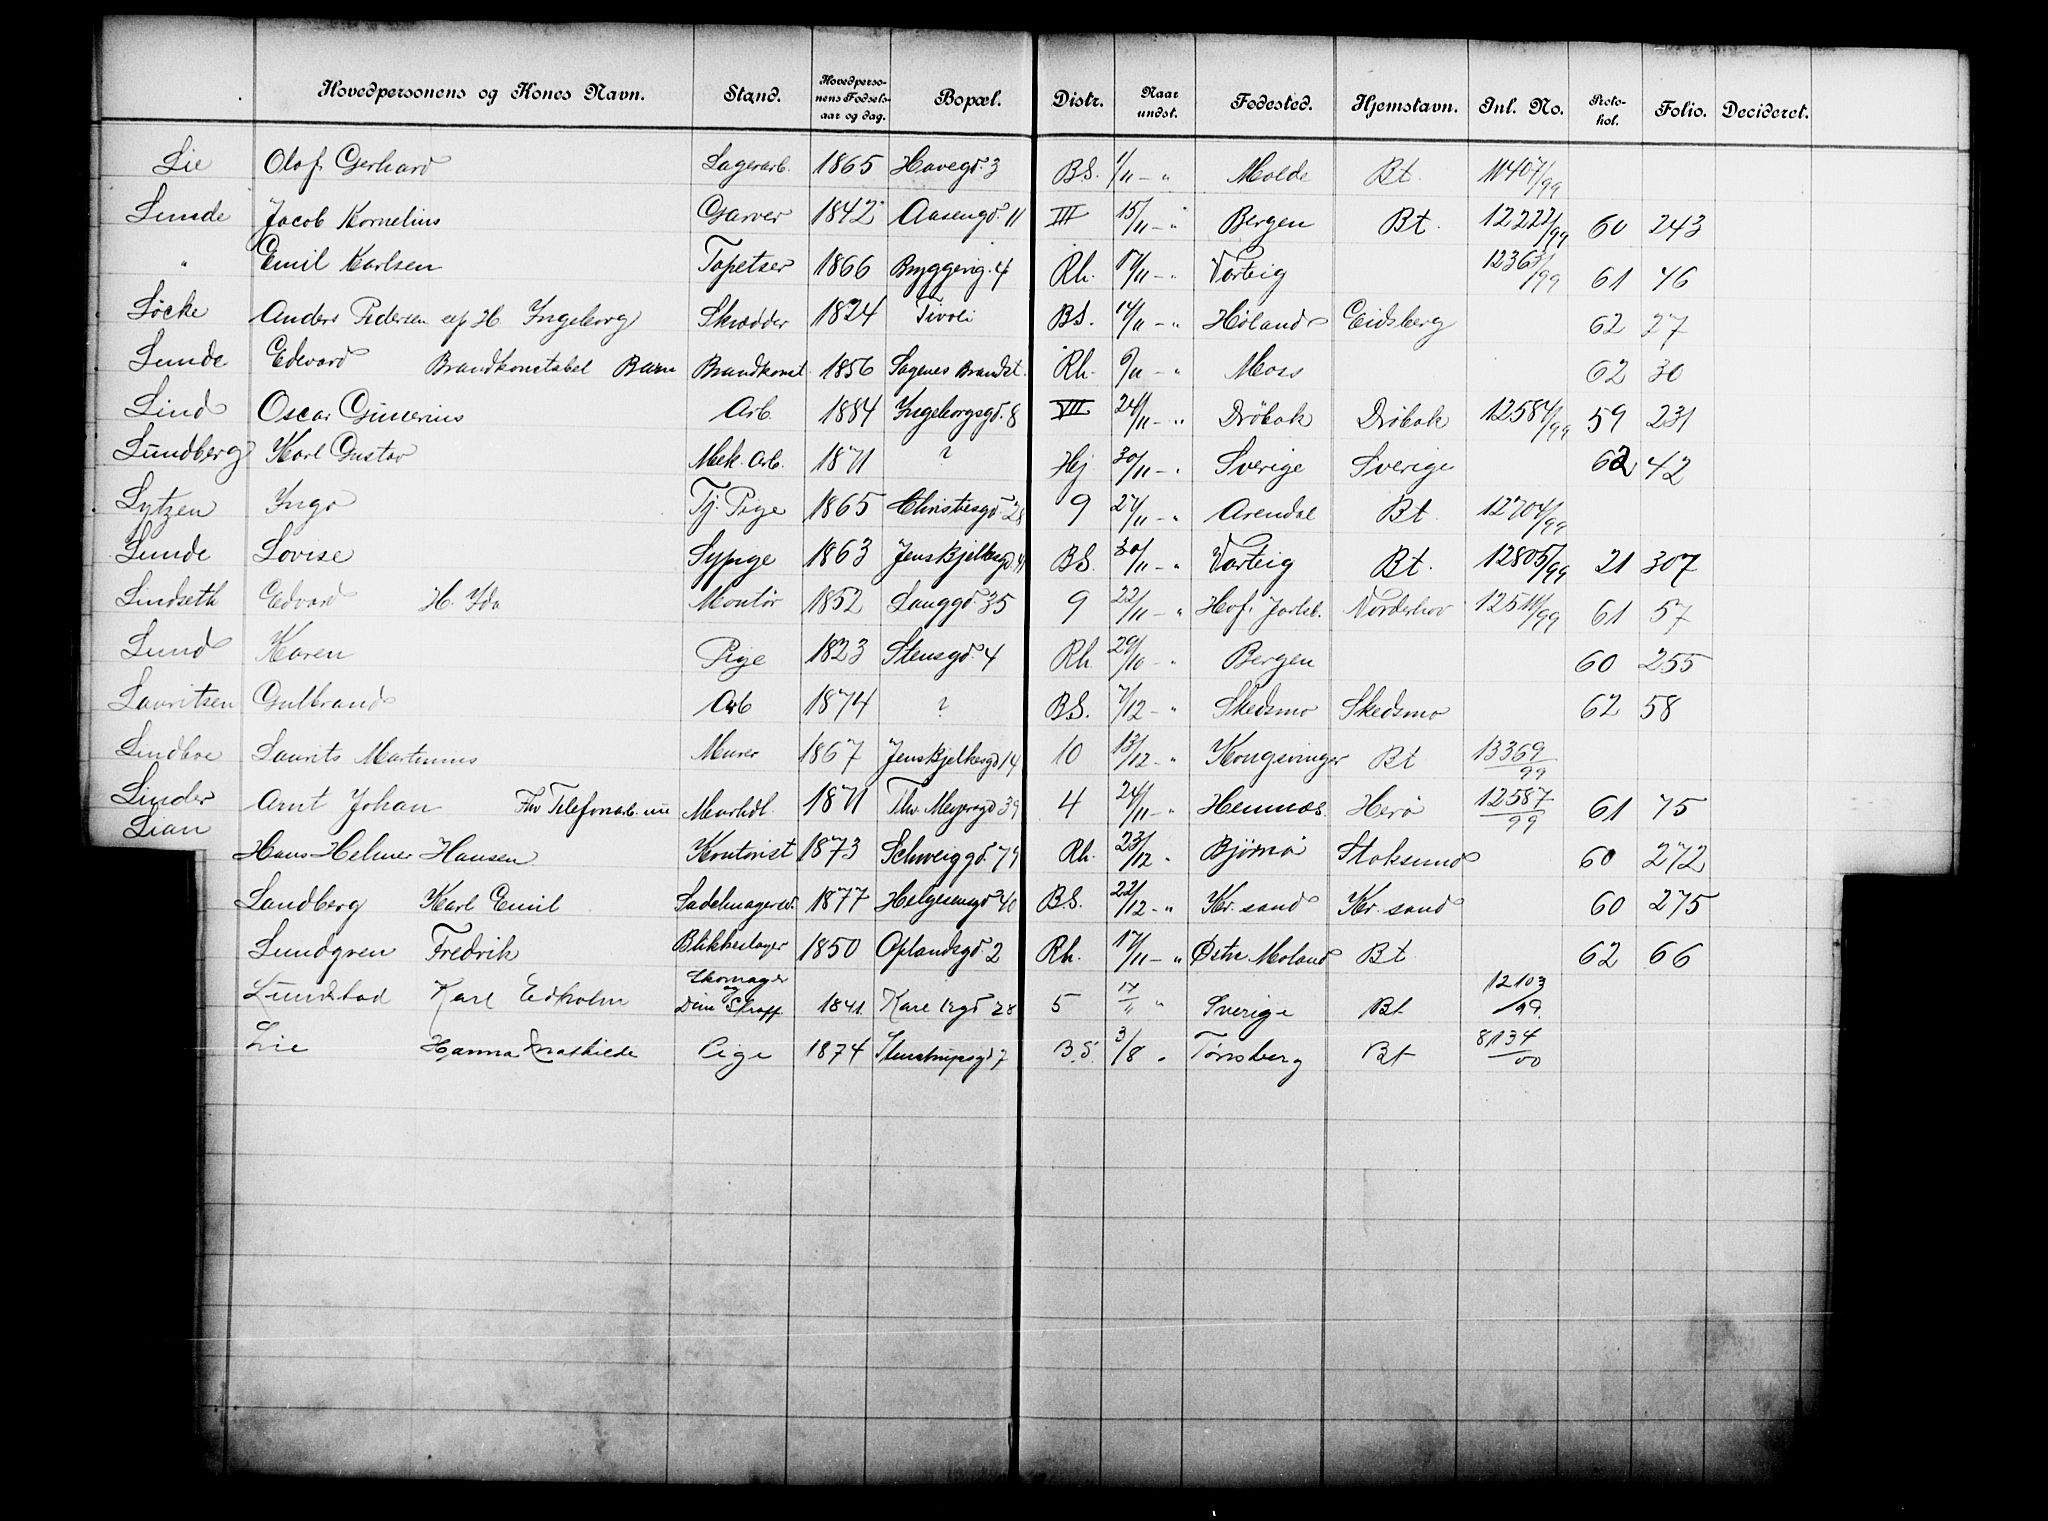 Hovedpersonens og Kones Navn. Stand. Hovedperso- nens Fødsels- aar og dag. Bopæl. Distr. Naar undst. Fødested. Hjemstavn. Inl. No. Proto- kol. Folio. Decideret.
Lie Olaf Gerhard Lagerarb. 1865 Havegd. 3 B.S. 1/11 - " Molde Bt. 11407/99
Lunde Jacob Kornelius Garver 1842 Aasengd. 11 III 15/11 - " Bergen Bt. 12222/99 60 243
" Emil Karlsen Tapetser 1866 Bryggerig. 4 Rh. 17/11 - " Varteig 12363/99 61 46
Löcke Anders Pedersen H. Ingeborg Skrædder 1824 Tivoli B.S. 14/11 - " Höland Eidsberg 62 27
Lunde Edevard Brandkonstabel Barn Brandkonst. 1856 Sagenes Brandst. Rh. 6/11 - " Moss 62 30
Lind Oscar Gunerius Arb. 1884 Ingeborgsgd. 8 VII 24/11 - " Dröbak Dröbak 12584/99 59 231
Lundberg Karl Gustav Mek. Arb. 1871 ? Hj 30/11 - " Sverige Sverige 62 42
Lytzen Inga Tj. Pige 1865 Christiesgd 28 9 27/11 - " Arendal Bt. 12704/99
Lunde Lovise Sypige 1863 Jens Bjelkesgd. B.S. 30/11 - " Varteig Bt. 12805/99 21 307
Lindseth Edvard H. Ida Montör 1852 Langgd. 35 9 22/11 - " Hof. Jarlsb. Norderhov 12511/99 61 57
Lund Karen Pige 1823 Stensgd. 4 Rh. 29/10 - " Bergen 60 255
Lauritsen Gulbrand Arb 1874 ? B.S. 7/12 - " Skedsmo Skedsmo 62 58
Lindboe Laurits Martinius Murer 1867 Jens Bjelkesgd 14 10 13/12 - " Kongsvinger Bt 13369/99
Linder Arnt Johan Fhv Telefonarb. nu Murhdl. 1871 Thv. Meyersgd 39 4 24/11 - " Hemnæs Herö 12587/99 61 75
Lian Hans Helmer Hansen Kontorist 1873 Schweiggd. 79 Rh. 23/12 " Björnör Stoksund 60 272
Landberg Karl Emil Sadelmagersv. 1877 Helgesensgd 40 B.S. 22/12 - " Kr. sand Kr. sand 60 275
Lundgren Fredrik Blikkeslager 1850 Oplandsgd. 2 Rh. 17/11 - " Østre Moland Bt 62 66
Lundstad Karl Edholm Skomager og Dim Straff. 1841. Karl 12gd 28 5 17/11 " Sverige Bt 12103/99.
Lie Hanna Mathilde Pige 1874 Stenstrupsgd 7 B.S. 3/8 " Tönsberg Bt 8134/00